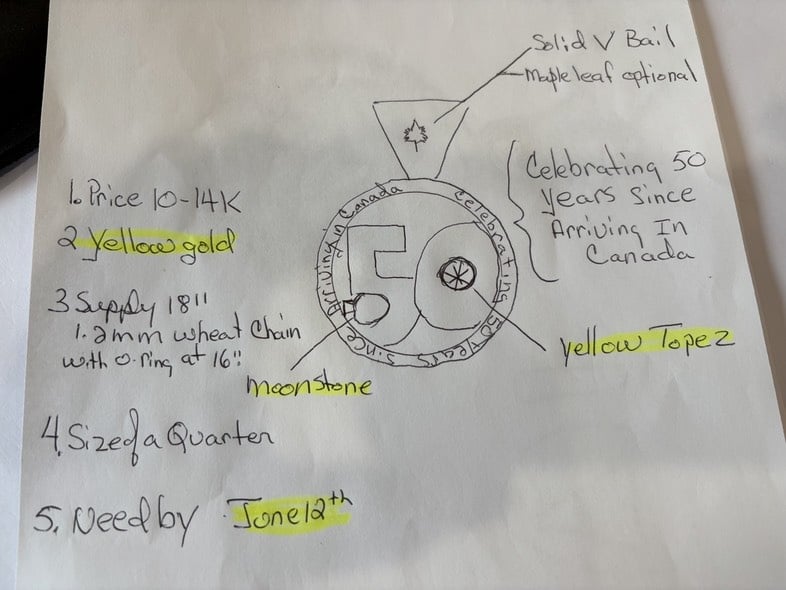 Solid V Bail
Maple leaf optional
Celebrating 50
Years Since
Arriving In
Canada
1. Price 10-14K
2. Yellow gold
3 Supply 18"
1.2mm wheat Chain
with O-ring at 16":
moonstone
yellow Topez
4. Size of a Quarter
5. Need by June 12th
Celebrating 50 Years Since Arriving in Canada
50